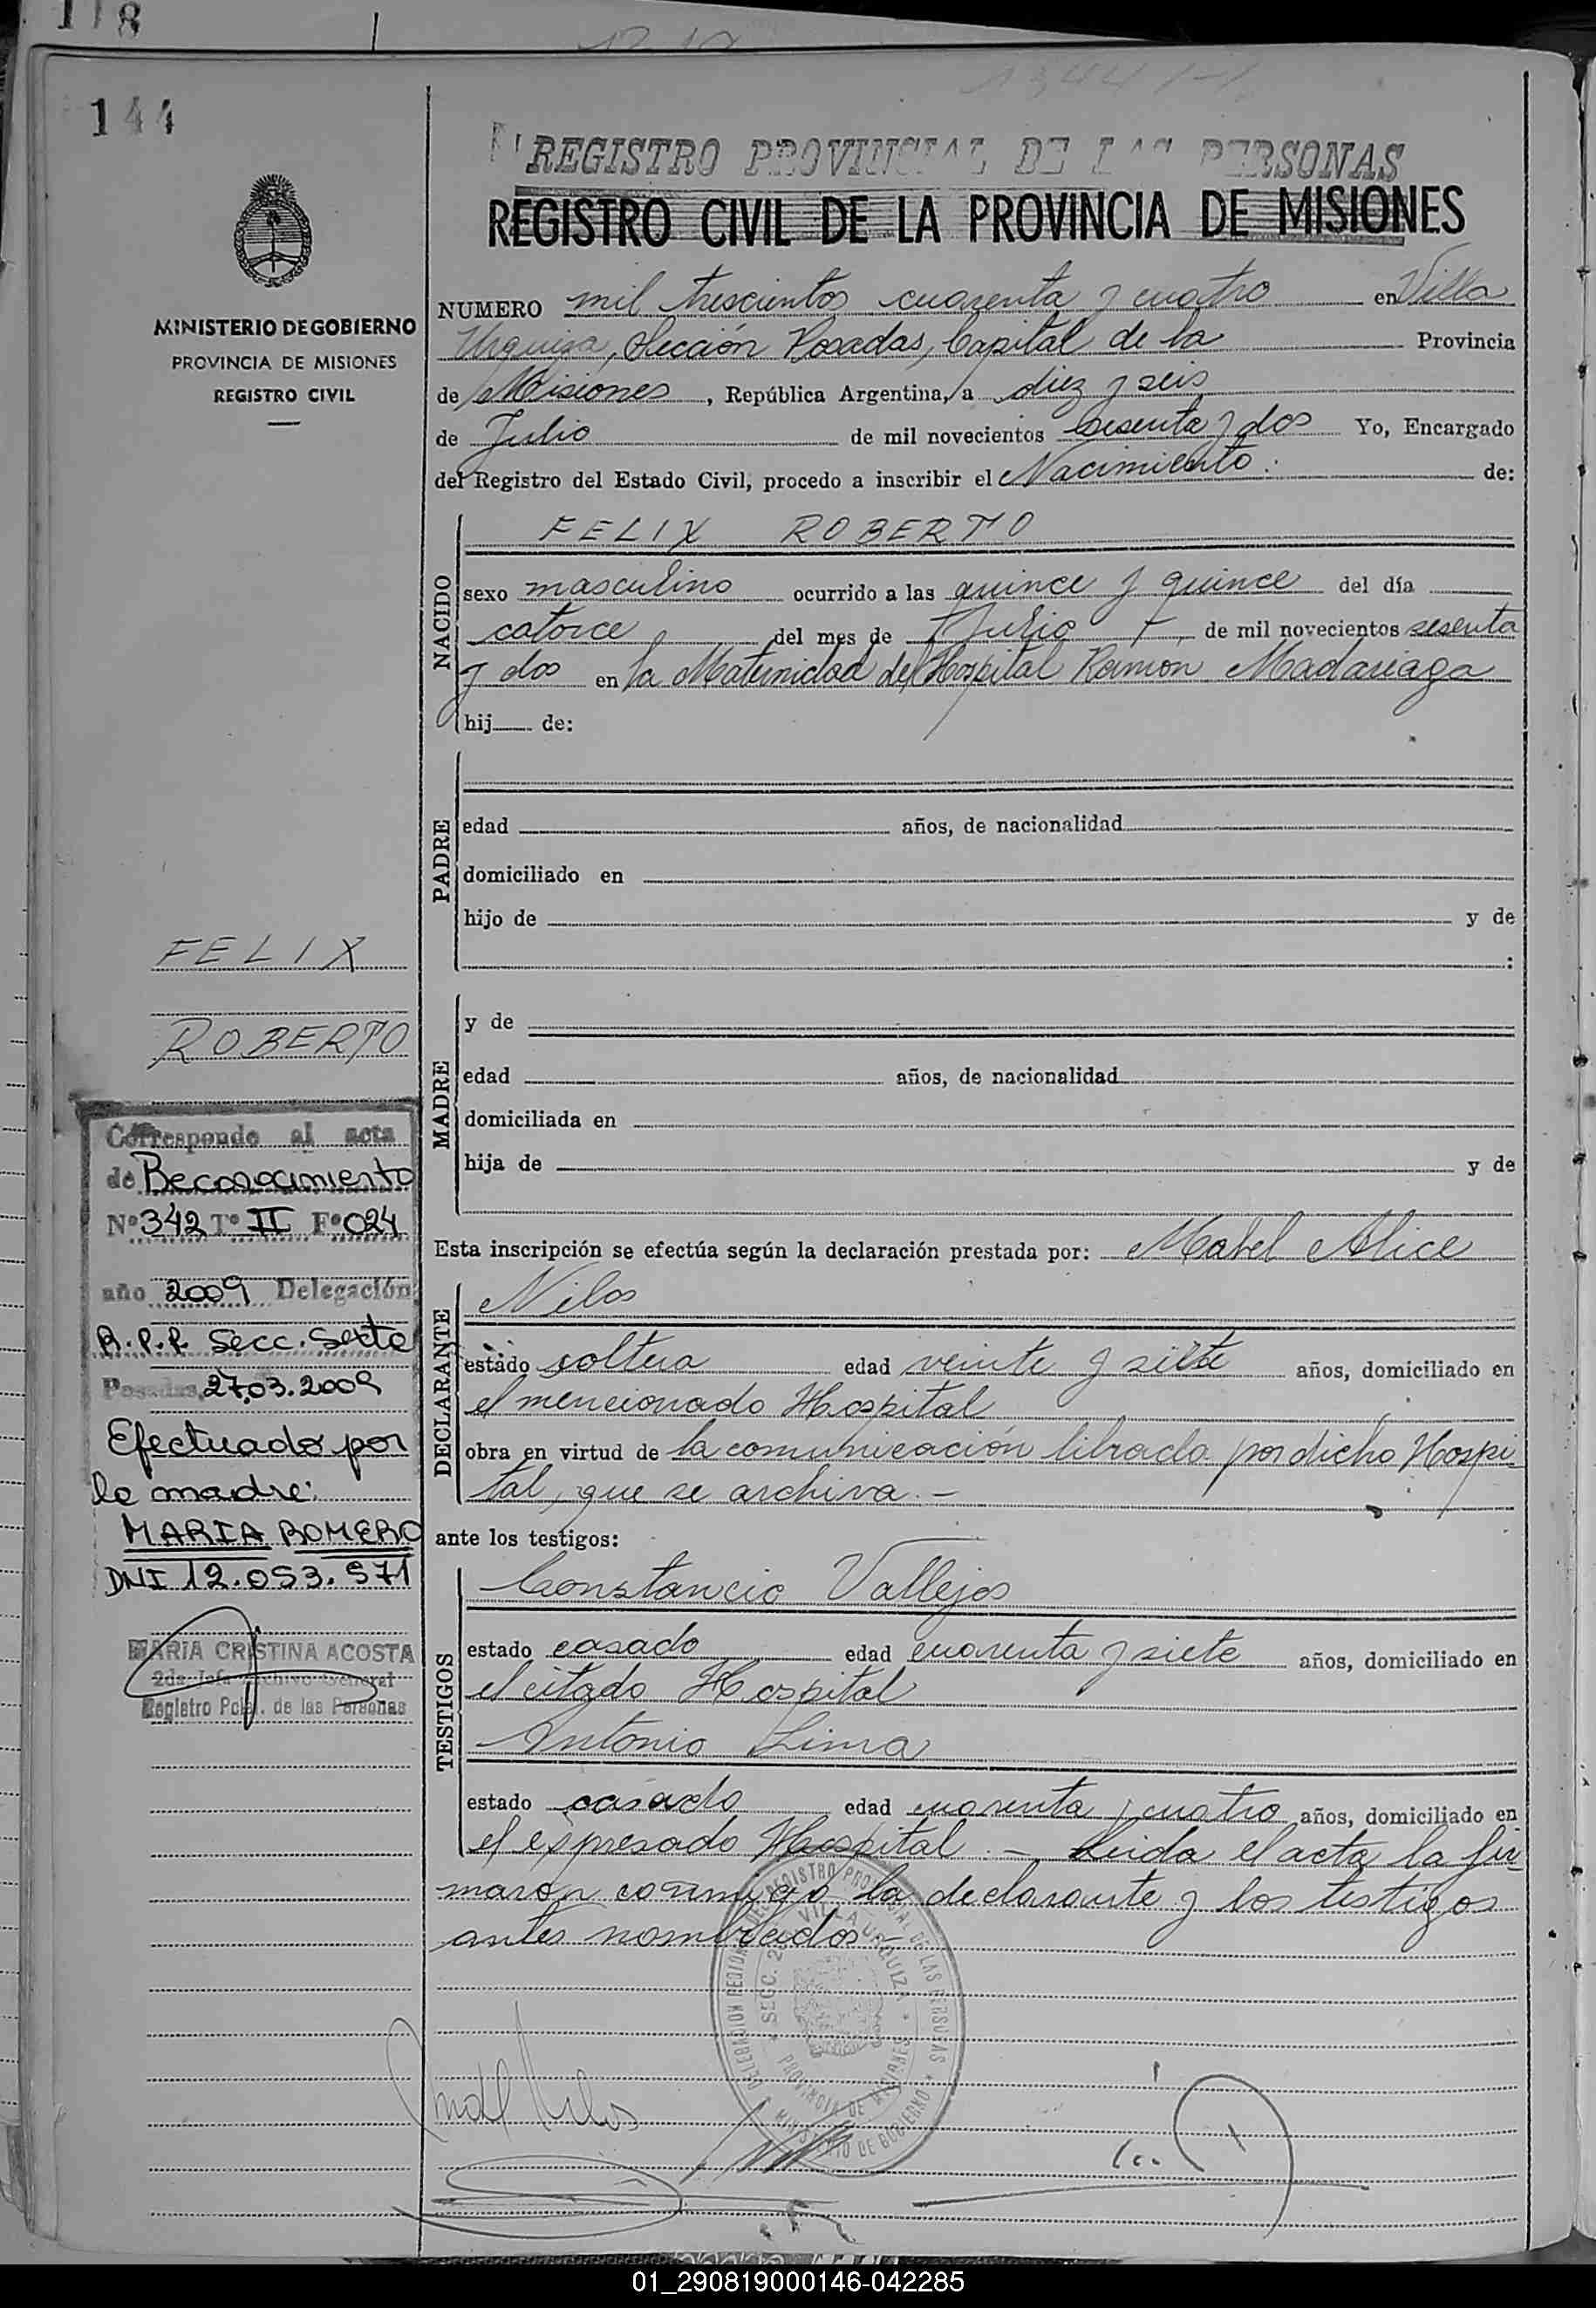 118
144
REGISTRO PROVINCIAL DE LAS PERSONAS
REGISTRO CIVIL DE LA PROVINCIA DE MISIONES
MINISTERIO DE GOBIERNO
PROVINCIA DE MISIONES
REGISTRO CIVIL
NUMERO mil trescientos cuarenta y cuatro en Villa
Urquiza, Sección Posadas, Capital de la Provincia
de Misiones, República Argentina, a diez y seis
de Julio de mil novecientos sesenta y dos Yo, Encargado
del Registro del Estado Civil, procedo a inscribir el Nacimiento: de:
NACIDO
FELIX ROBERTO
sexo masculino ocurrido a las quince y quince del día
catorce del mes de Julio de mil novecientos sesenta
y dos en la Maternidad del Hospital Ramón Madariaga
hij de:
PADRE
edad años, de nacionalidad
domiciliado en
hijo de y de
:
MADRE
y de
edad años, de nacionalidad
domiciliada en
hija de y de
Esta inscripción se efectúa según la declaración prestada por: Mabel Alice
DECLARANTE
Nilos
estado soltera edad veinte y siete años, domiciliado en
el mencionado Hospital
obra en virtud de la comunicación librada por dicho Hospi
tal, que se archiva.-
ante los testigos:
TESTIGOS
Constancio Vallejos
estado casado edad cuarenta y siete años, domiciliado en
el citado Hospital
Antonio Lima
estado casado edad cuarenta y cuatro años, domiciliado en
el expresado Hospital.- Leida el acta la fir
maron conmigo la declarante y los testigos
antes nombrados.-
FELIX
ROBERTO
Corresponde al acta
de Reconocimiento
Nº 342 Tº II Fº 024
año 2009 Delegación
R.P.P. Secc. Sexta
Posadas, 27.03.2009
Efectuado por
la madre:
MARIA ROMERO
DNI 12.053.571
MARIA CRISTINA ACOSTA
2da Jefa Archivo General
Registro Pcial. de las Personas
DELEGACION REGIONAL DEL REGISTRO PROVINCIAL DE LAS PERSONAS
SECC. 2da VILLA URQUIZA
PROVINCIA DE MISIONES
MINISTERIO DE GOBIERNO
01_290819000146-042285